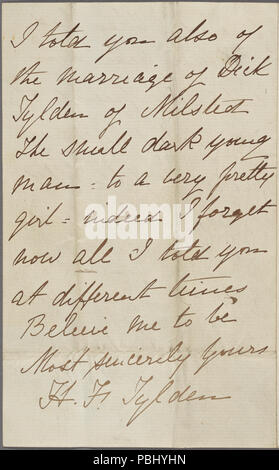 I told you also of
the marriage of Dick
Tylden of Milsted
The small dark young
man = to a very pretty
girl = indeed I forget
now all I told you
at different times
Believe me to be
Most sincerely yours
H. F. Tylden
alamy
Image ID: PBHYHN
www.alamy.com